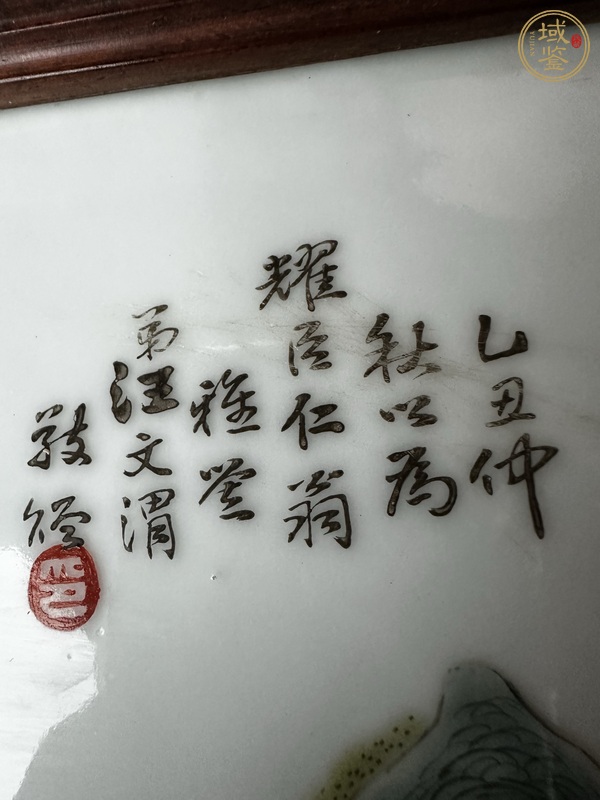 乙丑仲
秋以為
耀臣仁翁
雅鉴
弟汪文渭
敬贈
印
域鉴